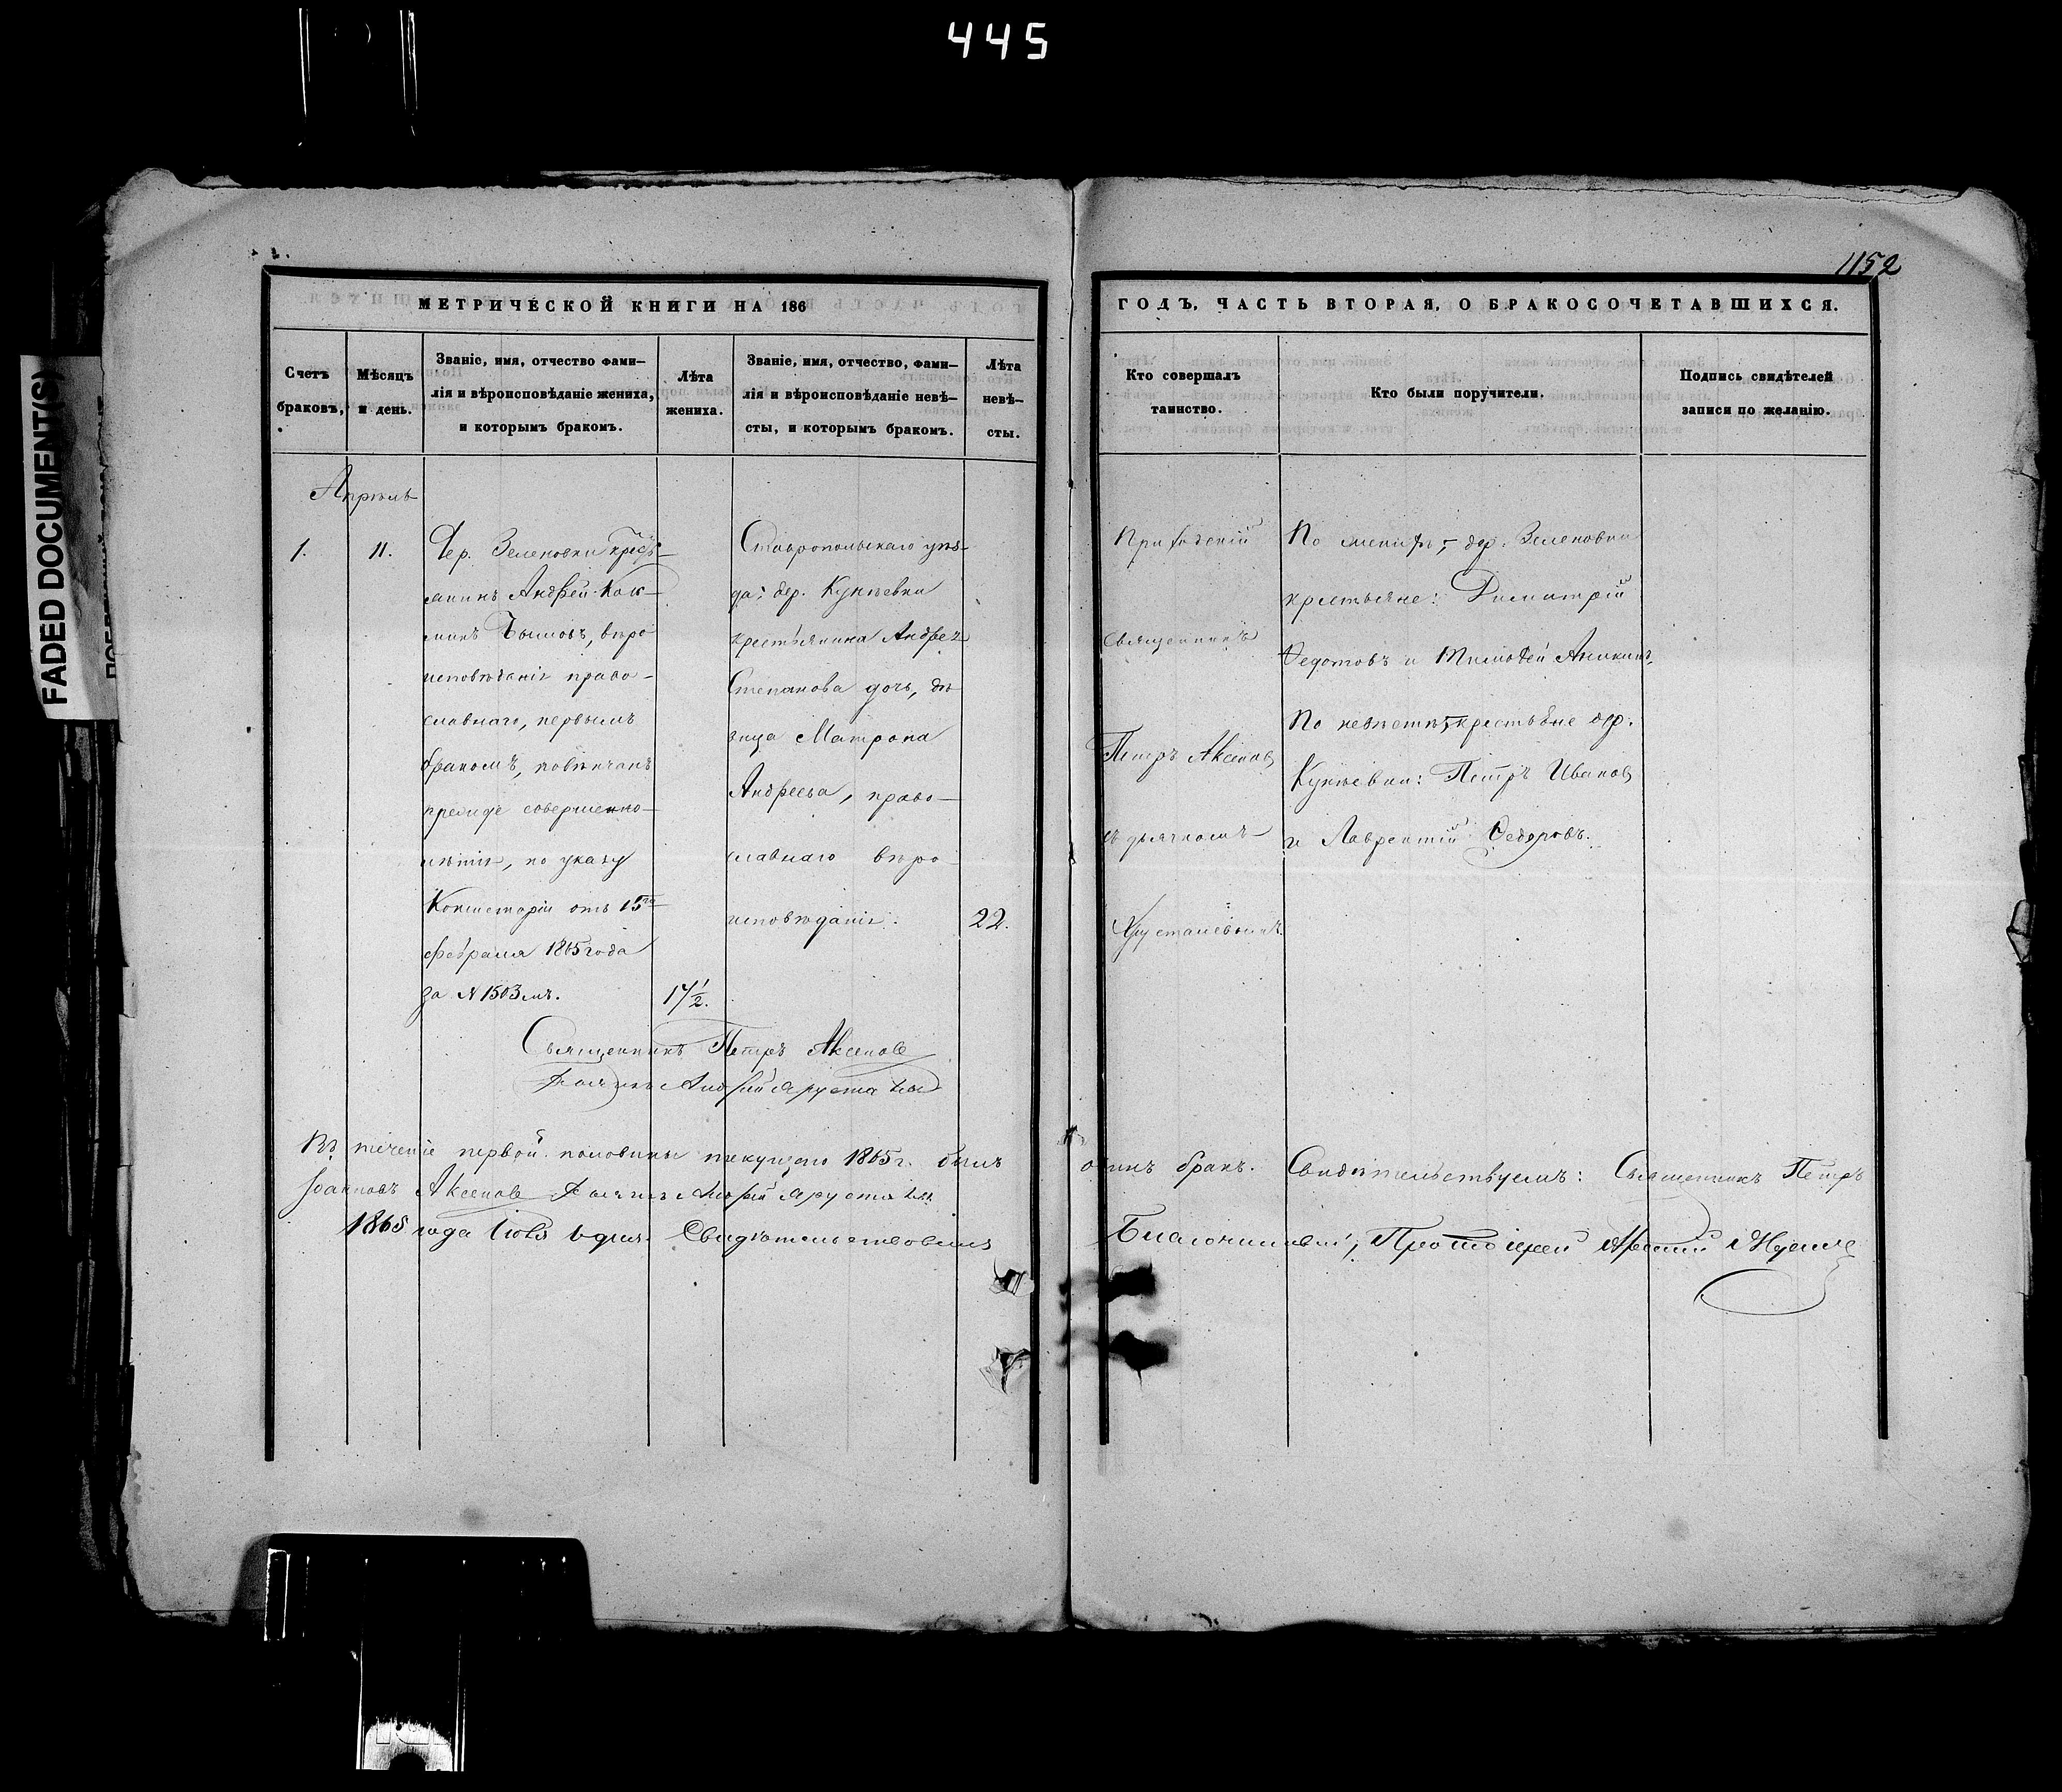 445
1152
FADED DOCUMENT(S)
МЕТРИЧЕСКОЙ КНИГИ НА 186
ГОДЪ, ЧАСТЬ ВТОРАЯ, О БРАКОСОЧЕТАВШИХСЯ.
Счетъ
браковъ,
Мѣсяцъ
и день.
Званіе, имя, отчество фами–
лія и вѣроисповѣданіе жениха,
и которымъ бракомъ.
Лѣта
жениха.
Званіе, имя, отчество, фами–
лія и вѣроисповѣданіе невѣ–
сты, и которымъ бракомъ.
Лѣта
невѣ–
сты.
Кто совершалъ
таинство.
Кто были поручители.
Подпись свидѣтелей
записи по желанію.
Апрѣль
1.
11.
Дер. Зеленовки кресть–
янинъ Андрей
вѣро
исповѣданія право–
славнаго, первымъ
бракомъ, повѣнчанъ
прежде совершенно–
лѣтія, по указу
Консисторіи отъ 15го
февраля 1865 года
за N 1503мъ.
17 1/2.
Ставропольскаго уѣз–
да, дер. Кунѣевки
крестьянина Андрея
Степанова дочь, дѣ
вица Матрона
Андреева, право–
славнаго вѣро
исповѣданія.
22.
Приходскій
священникъ
Петръ Аксеновъ
съ дьячкомъ
Хрусталевымъ.
По женихѣ, дер. Зеленовки
крестьяне: Димитрій
Ѳедотовъ и Тимоѳей Аникинъ,
По невѣстѣ, крестьяне дер.
Кунѣевки: Петръ Ивановъ
и Лаврентій Ѳедоровъ.
Священникъ Петръ Аксеновъ
Дьячекъ Андрей Хрусталевъ
Въ теченіе первой половины текущаго 1865 г. былъ одинъ бракъ. Свидѣтельствуемъ: Священникъ Петръ
Іоанновъ Аксеновъ Дьячекъ Андрей Хрусталевъ
1865 года Свидѣтельствовалъ Благочинный, Протоіерей